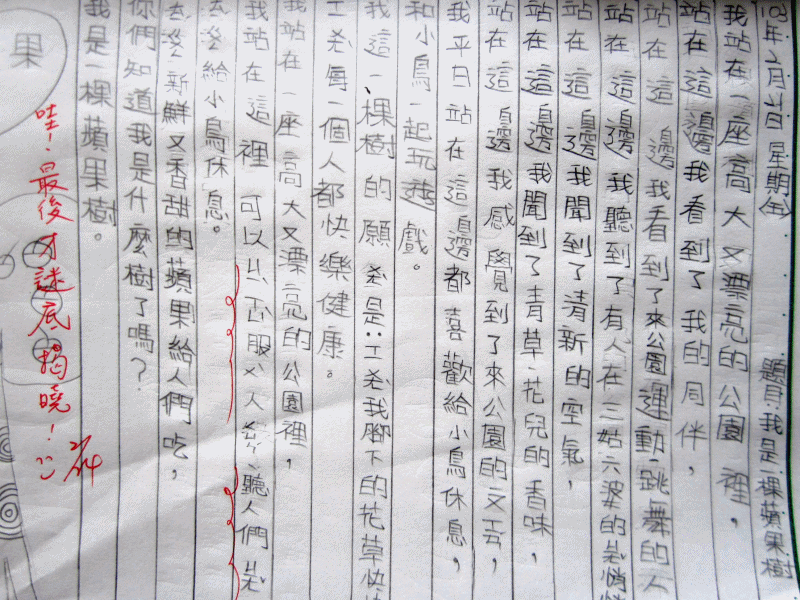 103年 月 日 星期(五) 題目:我是一棵蘋果樹
我站在一座高大又漂亮的公園裡,
站在這邊我看到了我的同伴,
站在這邊我看到了來公園運動、跳舞的人
站在這邊我聽到了有人在三姑六婆的
站在這邊我聞到了清新的空氣,
站在這邊我聞到了青草、花兒的香味,
站在這邊我感覺到了來公園的
我平日站在這邊都喜歡給小鳥休息,
和小鳥一起玩遊戲。
我這一棵樹的願 是: 我腳下的花草快快
每一個人都快樂健康。
我站在一座高大又漂亮的公園裡,
我站在這裡可以 聽人們
給小鳥休息。
新鮮又香甜的蘋果給人們吃,
你們知道我是什麼樹了嗎?
我是一棵蘋果樹。
哇!最後才謎底揭曉!
果